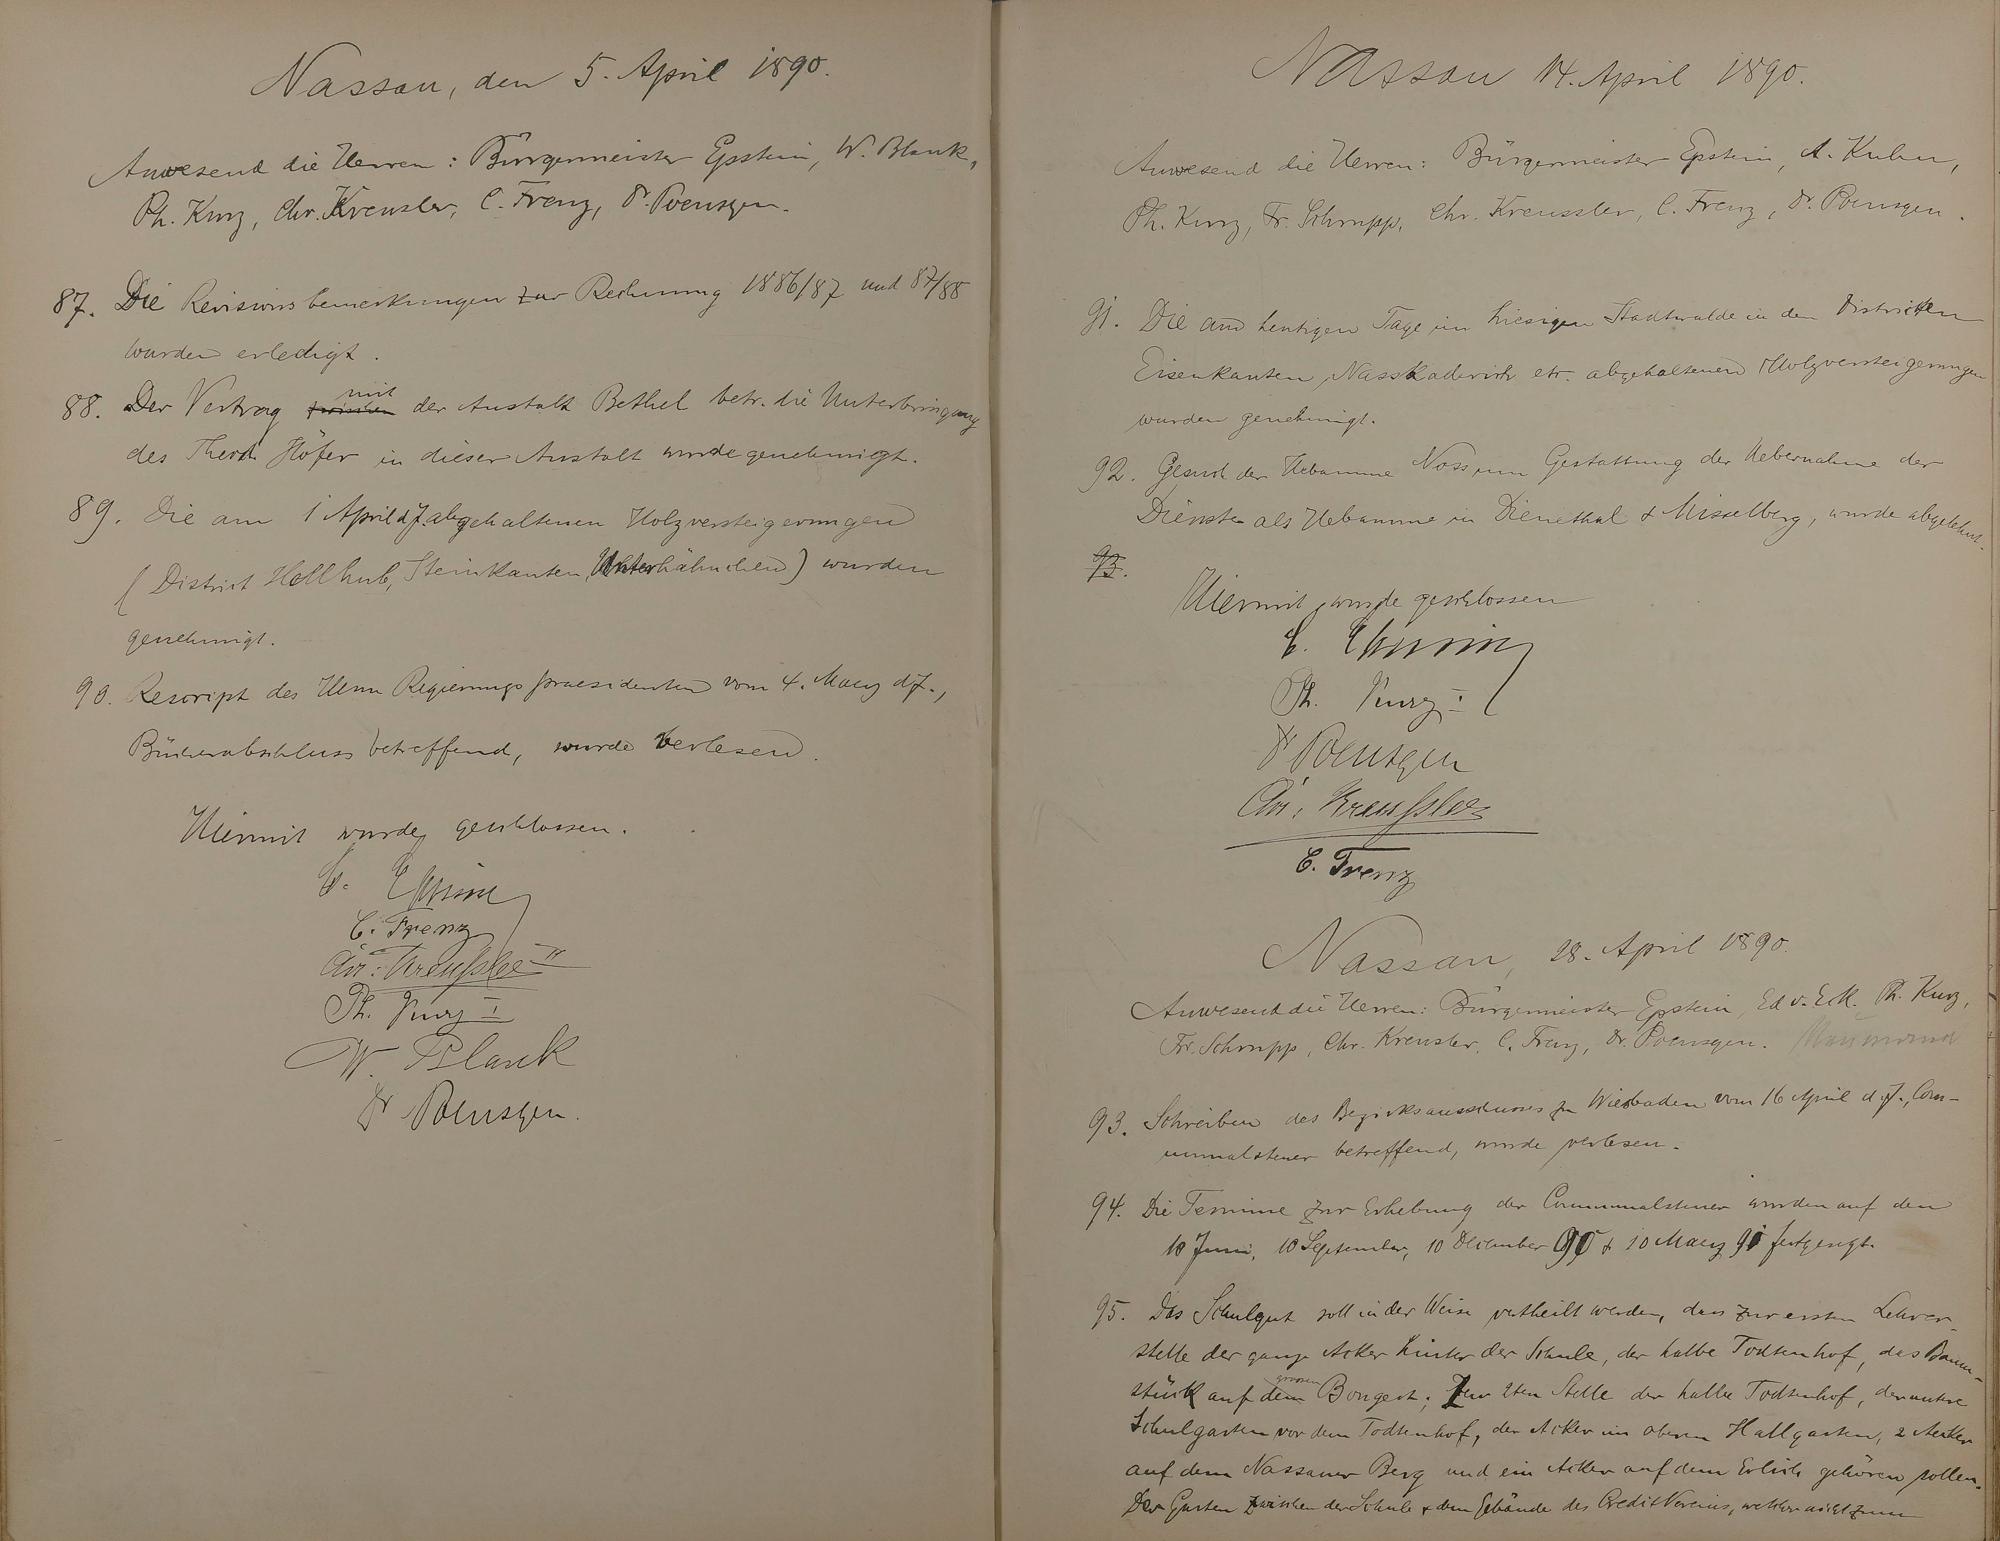 Nassau, den 5. April 1890.
Anwesend die Herren: Bürgermeister Epstein, W. Blank,
Ph. Kurz, Chr. Kreusler, C. Frenz, Dr. Poensgen.
87. Die Revisionsbemerkungen zur Rechnung 1886/87 und 87/88
wurden erledigt.
88. Der Vertrag zwischen mit der Anstalt Bethel betr. die Unterbringung
des Theod. Höfer in dieser Anstalt wurde genehmigt.
89. Die am 1 April d J abgehaltenen Holzversteigerungen
(District Hollhub, Steinkanten, Unterhähnchen) wurden
genehmigt.
90. Rescript des Herrn Regierungspraesidenten vom 4. Maerz d J.,
Bücherabschluss betreffend, wurde verlesen.
Hiermit wurde geschlossen.
C. Frenz
Chr. Kreussler II
Ph. Kurz I
W. Blank
Dr Poensgen.
Nassau 14. April 1890.
Anwesend die Herren: Bürgermeister Epstein, A. Kuhn,
Ph. Kurz, Fr. Schrupp, Chr. Kreussler, C. Frenz, Dr. Poensgen.
91. Die am heutigen Tage im hiesigen Stadtwalde in den Districten
Eisenkanten, Nasskaderich etc. abgehaltenen Holzversteigerungen
wurden genehmigt.
92. Gesuch der Hebamme Noss um Gestattung der Uebernahme der
Dienste als Hebamme in Dienethal & Misselberg, wurde abgelehnt.
93.
Hiermit wurde geschlossen
Ph. Kurz I
Dr Poensgen
Chr. Kreussler
C. Frenz
Nassau, 28. April 1890.
Anwesend die Herren: Bürgermeister Epstein, Ed v. Eck, Ph. Kurz,
Fr. Schrupp, Chr. Kreusler, C. Frenz, Dr. Poensgen.
93. Schreiben des Bezirksausschusses zu Wiesbaden vom 16 April d. J., Com-
munalsteuer betreffend, wurde verlesen.
94. Die Termine zur Erhebung der Communalsteuer wurden auf den
10 Juni, 10 September, 10 December 90 & 10 Maerz 91 festgesetzt.
95. Das Schulgut soll in der Weise vertheilt werden, dass zur ersten Lehrer-
stelle der ganze Acker hinter der Schule, der halbe Todtenhof, das Baum-
stück auf dem grossen Bongert; Zur 2ten Stelle der halbe Todtenhof, der untere
Schulgarten vor dem Todtenhof, der Acker im oberen Hallgarten, 2 Aecker
auf dem Nassauer Berg und ein Acker auf dem Erlich gehören sollen.
Der Garten zwischen der Schule & dem Gebäude des CreditVereins, welcher nicht zum